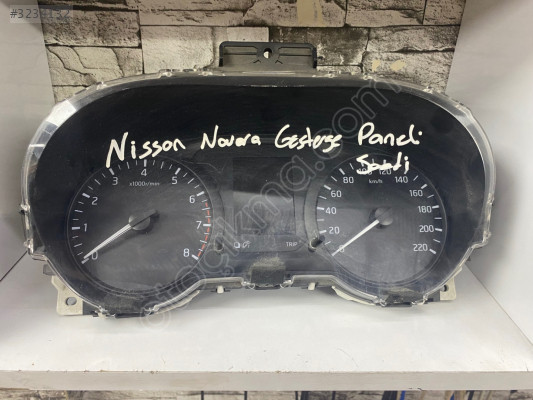 #3233132
Nissan Navara Gösterge Paneli
Saati
3 4 5
2 6
x1000r/min
1 7
0 8
TRIP
80 100 120 140
km/h
60 160
40 180
20 200
0 220
stockmd.com